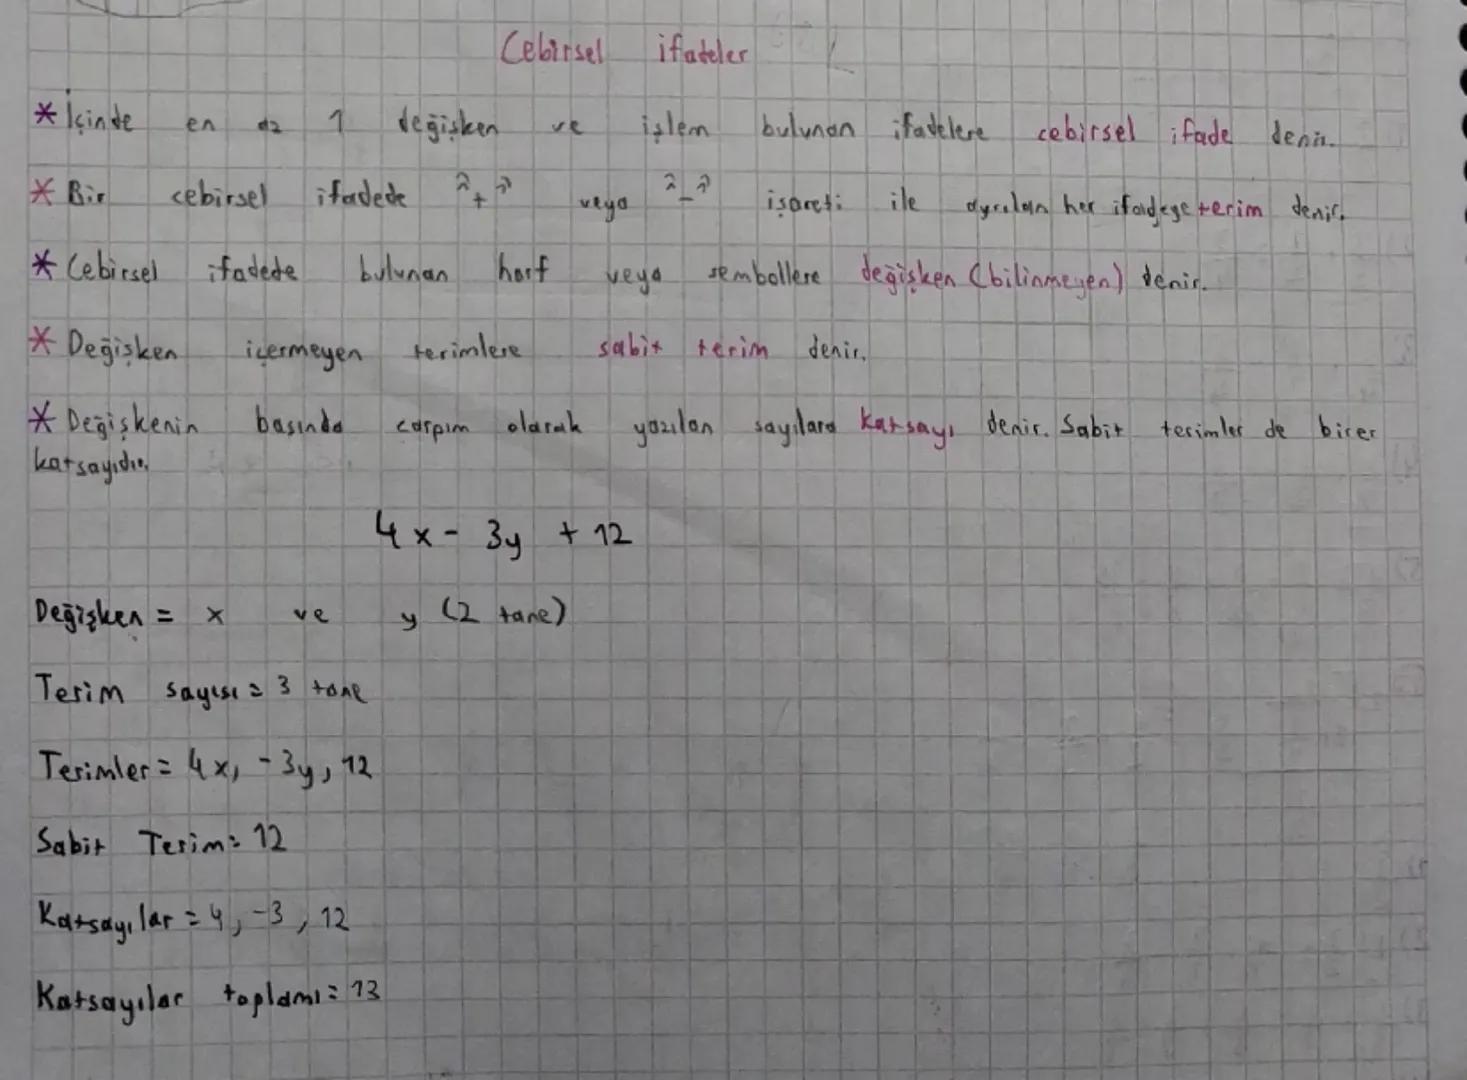 Cebirsel ifadeler
* İçinde en az 1 değişken ve işlem bulunan ifadelere cebirsel ifade denir.
* Bir cebirsel ifadede "+" veya "-" işareti ile ayrılan her ifadeye terim denir.
* Cebirsel ifadede bulunan harf veya sembollere değişken (bilinmeyen) denir.
* Değişken içermeyen terimlere sabit terim denir.
* Değişkenin başında çarpım olarak yazılan sayılara katsayı denir. Sabit terimler de birer
katsayıdır.
4x - 3y + 12
Değişken = x ve y (2 tane)
Terim sayısı = 3 tane
Terimler = 4x, -3y, 12
Sabit Terim = 12
Katsayılar = 4, -3, 12
Katsayılar toplamı = 13